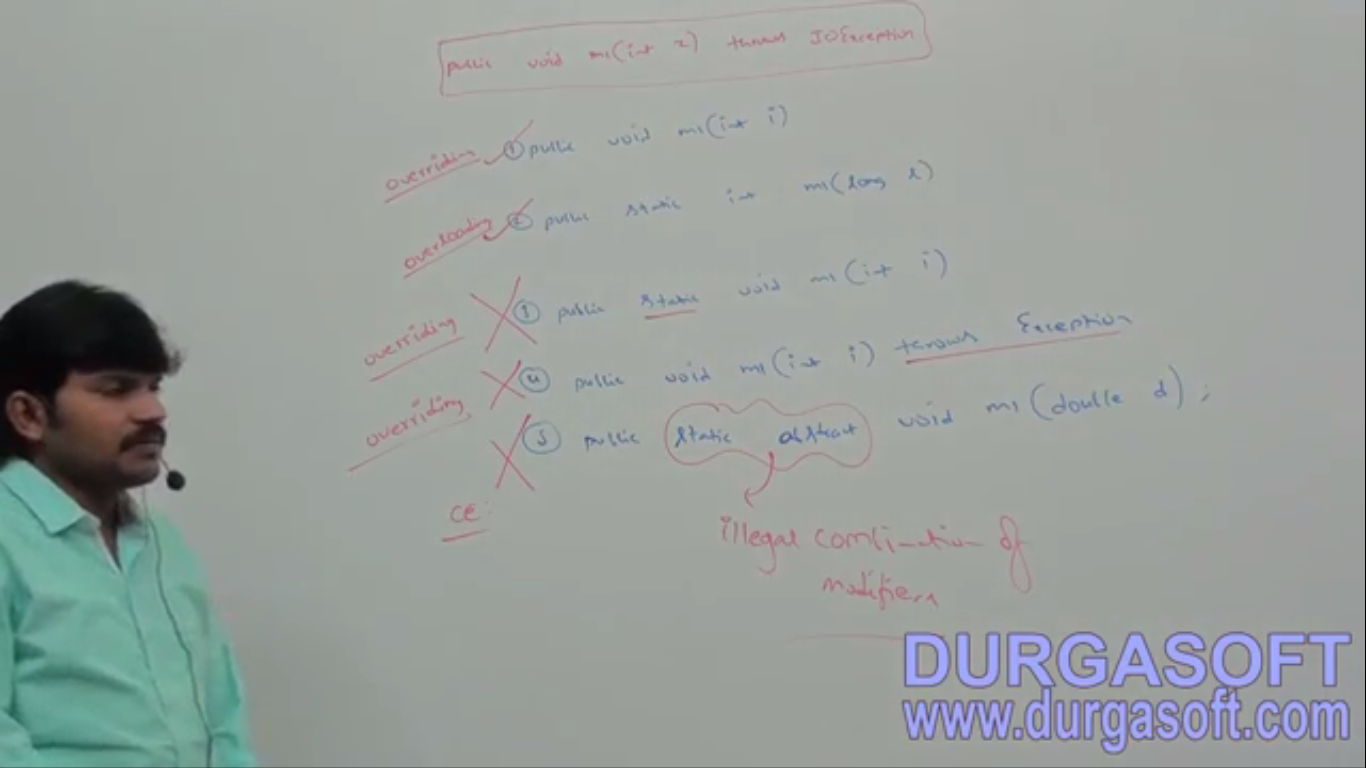 public void m1(int x) throws IOException
overriding ① public void m1(int i)
overloading ② public static int m1(long l)
overriding ③ public static void m1(int i)
overriding ④ public void m1(int i) throws Exception
⑤ public static abstract void m1(double d);
CE:
illegal combination of
modifiers
DURGASOFT
www.durgasoft.com